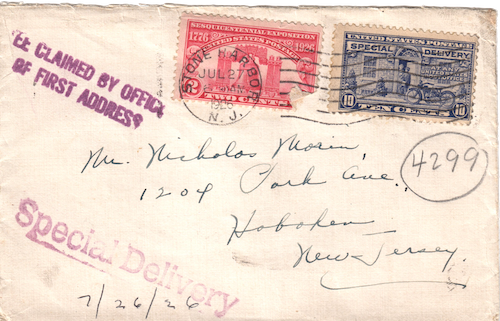 FEE CLAIMED BY OFFICE
OF FIRST ADDRESS
SESQUICENTENNIAL EXPOSITION
1776 1926
UNITED STATES POSTAGE
2 TWO CENTS 2
STONE HARBOR
JUL 27
1926
N. J.
UNITED STATES POSTAGE
SPECIAL DELIVERY
10 TEN CENTS 10
Mr. Nicholas Morin,
1204 Park Ave.,
Hoboken
New Jersey.
4299
Special Delivery
7/26/26